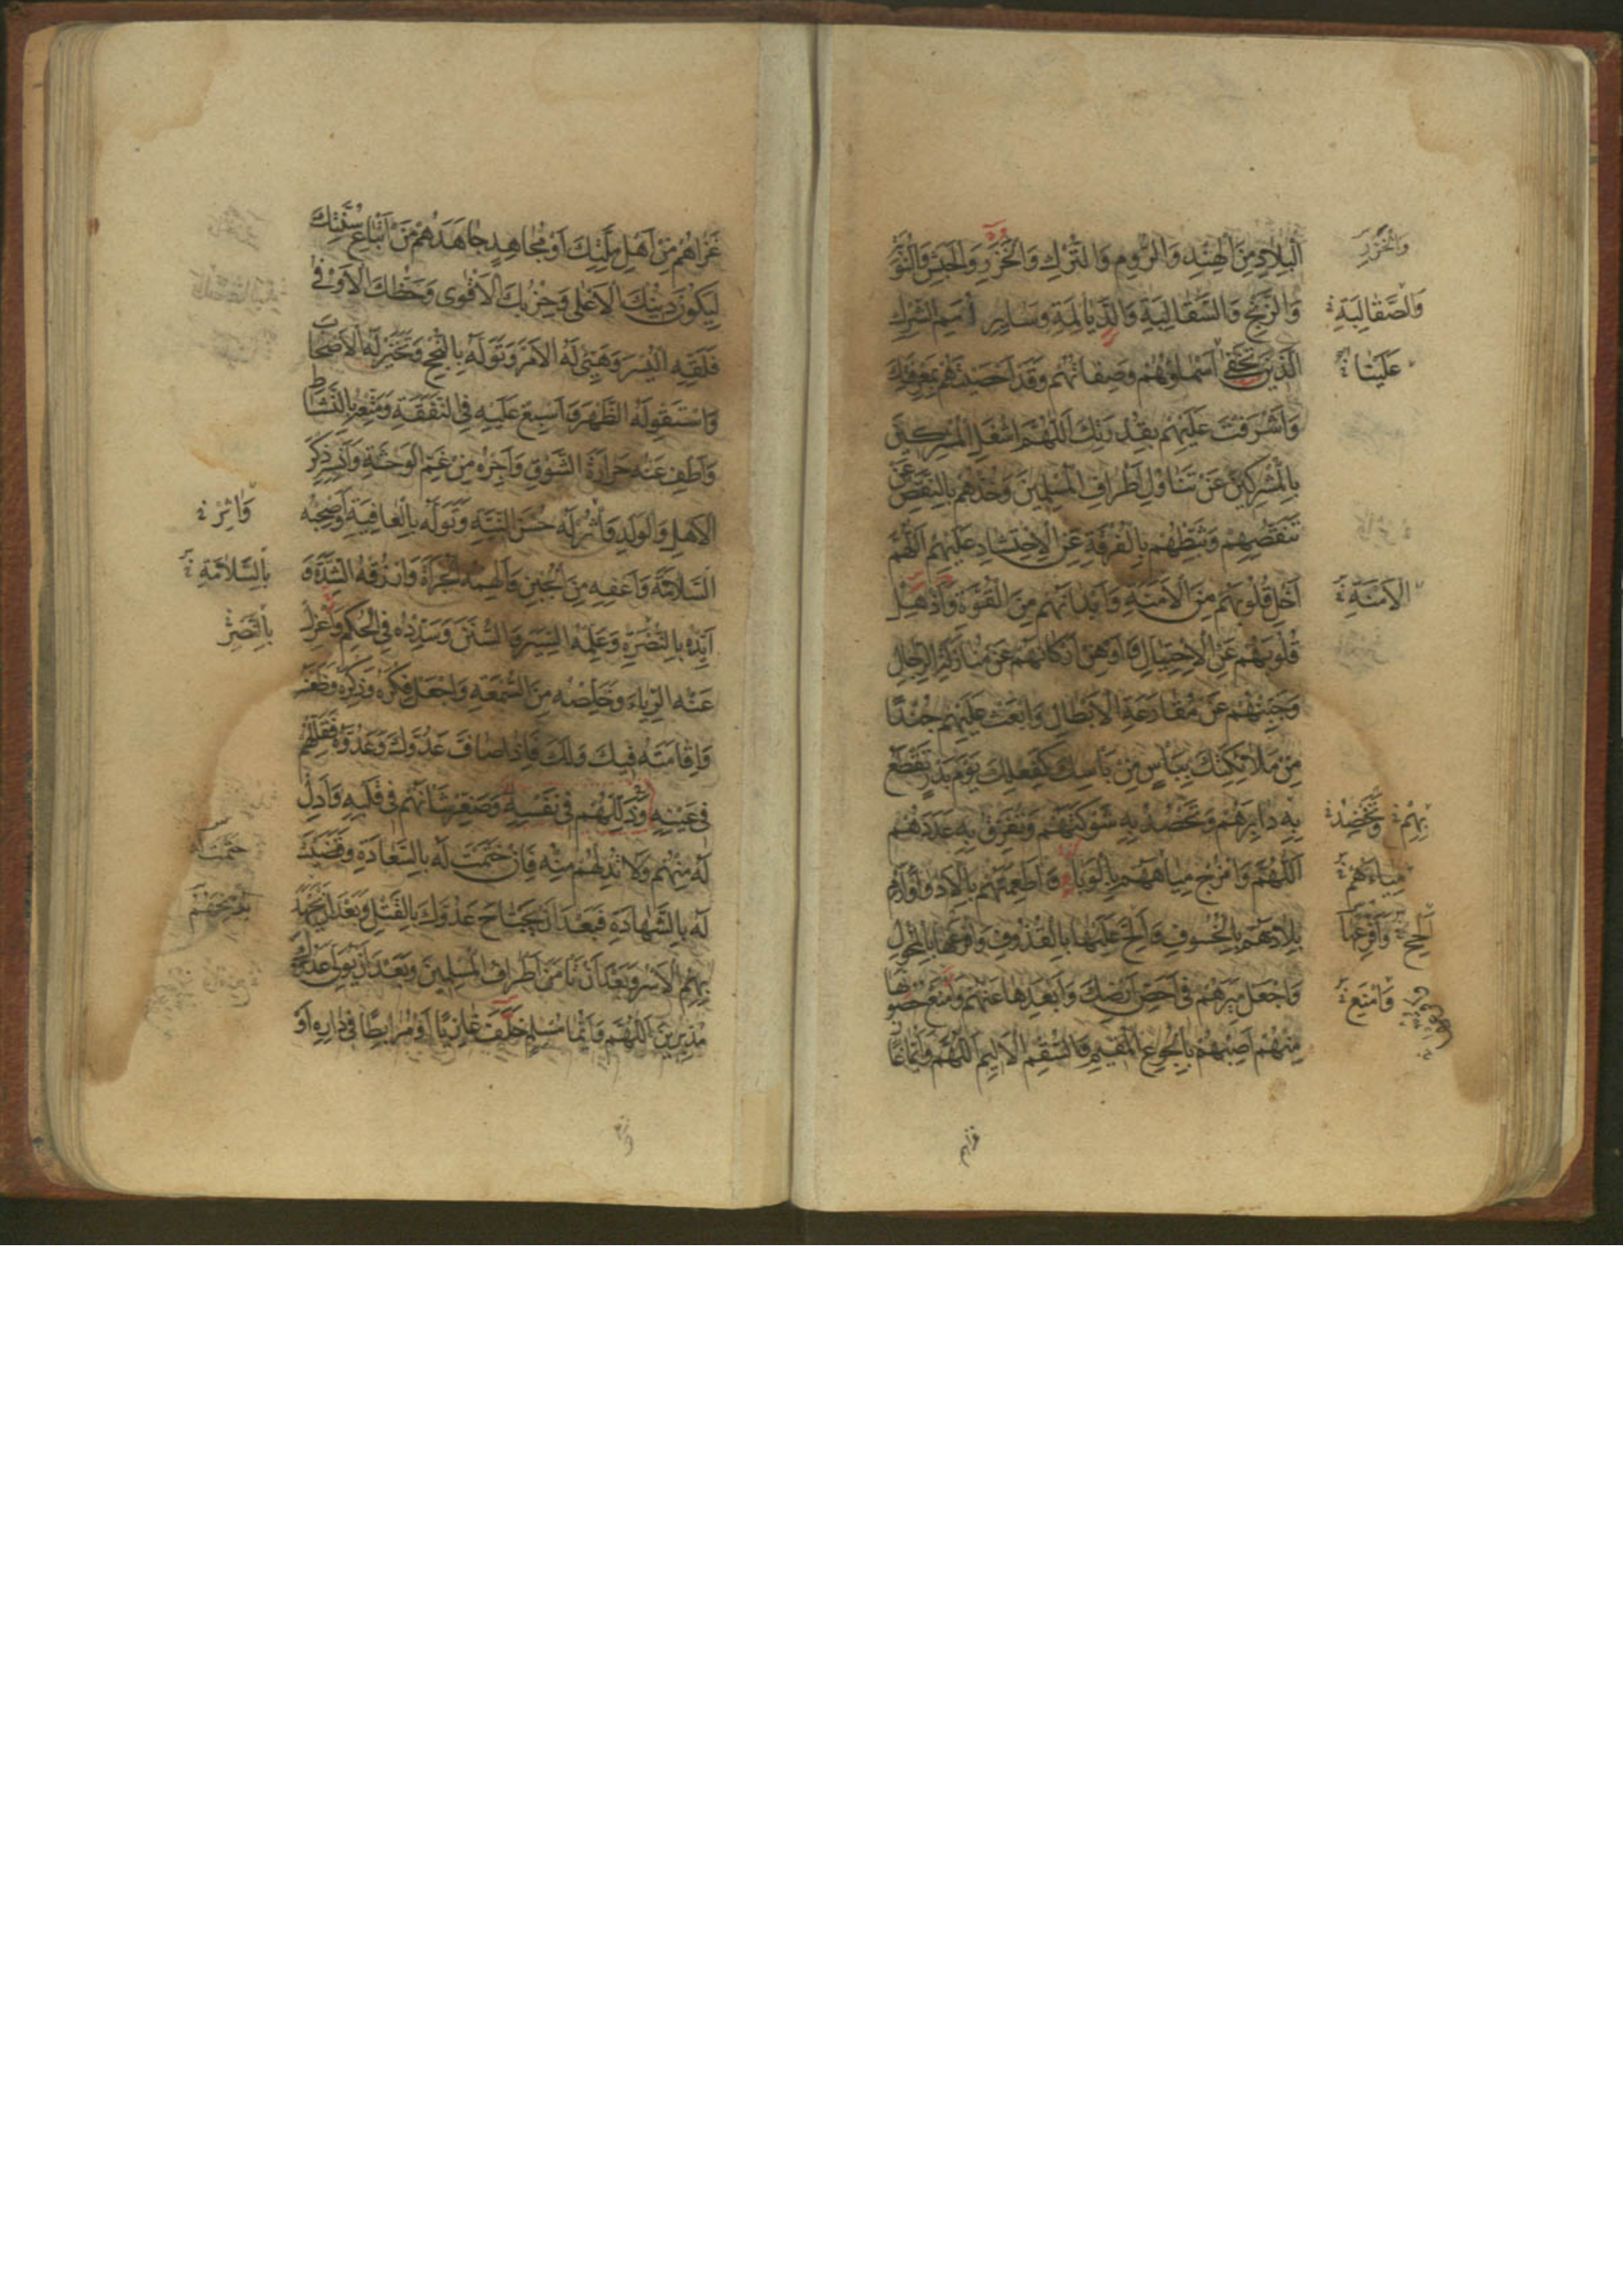 اَلْبِلَادِ مِنَ الْهِنْدِ وَالرُّومِ وَالتُّرْكِ وَالْخَزَرِ وَالْحَبَشِ وَالنُّوبَةِ
وَالزَّنْجِ وَالسَّقَالِبَةِ وَالدَّيَالِمَةِ وَسَائِرِ أُمَمِ الشِّرْكِ
الَّذِينَ تَخْفَى أَسْمَاؤُهُمْ وَصِفَاتُهُمْ وَقَدْ أَحْصَيْتَهُمْ بِمَعْرِفَتِكَ
وَأَشْرَفْتَ عَلَيْهِمْ بِقُدْرَتِكَ اَللّٰهُمَّ اشْغَلِ الْمُشْرِكِينَ
بِالْمُشْرِكِينَ عَنْ تَنَاوُلِ أَطْرَافِ الْمُسْلِمِينَ وَخُذْهُمْ بِالنَّقْصِ عَنْ
تَنَقُّصِهِمْ وَثَبِّطْهُمْ بِالْفُرْقَةِ عَنِ الْاِحْتِشَادِ عَلَيْهِمْ اَللّٰهُمَّ
أَخْلِ قُلُوبَهُمْ مِنَ الْأَمَنَةِ وَأَبْدَانَهُمْ مِنَ الْقُوَّةِ وَأَذْهِلْ
قُلُوبَهُمْ عَنِ الْاِحْتِيَالِ وَأَوْهِنْ أَرْكَانَهُمْ عَنْ مُنَازَلَةِ الرِّجَالِ
وَجَبِّنْهُمْ عَنْ مُقَارَعَةِ الْأَبْطَالِ وَابْعَثْ عَلَيْهِمْ جُنْدًا
مِنْ مَلَائِكَتِكَ بِبَأْسٍ مِنْ بَأْسِكَ كَفِعْلِكَ يَوْمَ بَدْرٍ تَقْطَعُ
بِهِ دَابِرَهُمْ وَتَحْصُدُ بِهِ شَوْكَتَهُمْ وَتُفَرِّقُ بِهِ عَدَدَهُمْ
اَللّٰهُمَّ وَامْزُجْ مِيَاهَهُمْ بِالْوَبَاءِ وَأَطْعِمَتَهُمْ بِالْأَدْوَاءِ وَارْمِ
بِلَادَهُمْ بِالْخُسُوفِ وَأَلِحَّ عَلَيْهَا بِالْقُذُوفِ وَافْرَعْهَا بِالْمُحُولِ
وَاجْعَلْ مِيَرَهُمْ فِي أَحَصِّ أَرْضِكَ وَأَبْعَدِهَا عَنْهُمْ وَامْنَعْ حُصُونَهَا
مِنْهُمْ أَصِبْهُمْ بِالْجُوعِ الْمُقِيمِ وَالسُّقْمِ الْأَلِيمِ اَللّٰهُمَّ وَأَيُّمَا غَازٍ
وَالْخَزَرِ
وَالصَّقَالِبَةِ
عَلَيْنَا
الْأَمَنَةِ
بِهِمْ وَتَخْضِدُ
مِيَاهَهُمْ
أَلْحِحْ وَافْرَعْهَا
وَامْنَعْ
غزاهم
غَزَاهُمْ مِنْ أَهْلِ مِلَّتِكَ أَوْ مُجَاهِدٍ جَاهَدَهُمْ مِنْ أَتْبَاعِ سُنَّتِكَ
لِيَكُونَ دِينُكَ الْأَعْلَى وَحِزْبُكَ الْأَقْوَى وَحَظُّكَ الْأَوْفَى
فَلَقِّهِ الْيُسْرَ وَهَيِّئْ لَهُ الْأَمْرَ وَتَوَلَّهُ بِالنُّجْحِ وَتَخَيَّرْ لَهُ الْأَصْحَابَ
وَاسْتَقْوِ لَهُ الظَّهْرَ وَأَسْبِغْ عَلَيْهِ فِي النَّفَقَةِ وَمَتِّعْهُ بِالنَّشَاطِ
وَأَطْفِ عَنْهُ حَرَارَةَ الشَّوْقِ وَأَجِرْهُ مِنْ غَمِّ الْوَحْشَةِ وَأَنْسِهِ ذِكْرَ
الْأَهْلِ وَالْوَلَدِ وَأْثُرْ لَهُ حُسْنَ النِّيَّةِ وَتَوَلَّهُ بِالْعَافِيَةِ وَأَصْحِبْهُ
السَّلَامَةَ وَأَعْفِهِ مِنَ الْجُبْنِ وَأَلْهِمْهُ الْجُرْأَةَ وَارْزُقْهُ الشِّدَّةَ وَ
أَيِّدْهُ بِالنُّصْرَةِ وَعَلِّمْهُ السِّيَرَ وَالسُّنَنَ وَسَدِّدْهُ فِي الْحُكْمِ وَاعْزِلْ
عَنْهُ الرِّيَاءَ وَخَلِّصْهُ مِنَ السُّمْعَةِ وَاجْعَلْ فِكْرَهُ وَذِكْرَهُ وَظَعْنَهُ
وَإِقَامَتَهُ فِيكَ وَلَكَ فَإِذَا صَافَّ عَدُوَّكَ وَعَدُوَّهُ فَقَلِّلْهُمْ
فِي عَيْنِهِ وَذَلِّلْهُمْ فِي نَفْسِهِ وَصَغِّرْ شَأْنَهُمْ فِي قَلْبِهِ وَأَدِلْ
لَهُ مِنْهُمْ وَلَا تُدِلْهُمْ مِنْهُ فَإِنْ خَتَمْتَ لَهُ بِالسَّعَادَةِ وَقَضَيْتَ
لَهُ بِالشَّهَادَةِ فَبَعْدَ أَنْ يَجْتَاحَ عَدُوَّكَ بِالْقَتْلِ وَبَعْدَ أَنْ يَجْهَدَ
بِهِمُ الْأَسْرُ وَبَعْدَ أَنْ تَأْمَنَ أَطْرَافُ الْمُسْلِمِينَ وَبَعْدَ أَنْ يُوَلِّيَ عَدُوُّكَ
مُدْبِرِينَ اَللّٰهُمَّ وَأَيُّمَا مُسْلِمٍ خَلَفَ غَازِيًا أَوْ مُرَابِطًا فِي دَارِهِ أَوْ
وَاثِرْ
بِالسَّلَامَةِ
بِالنَّصْرِ
خَتَمْتَ لَهُ